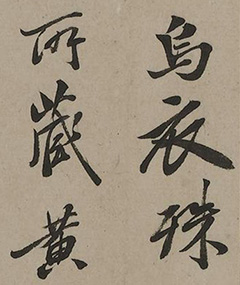 烏衣珠
所藏黃